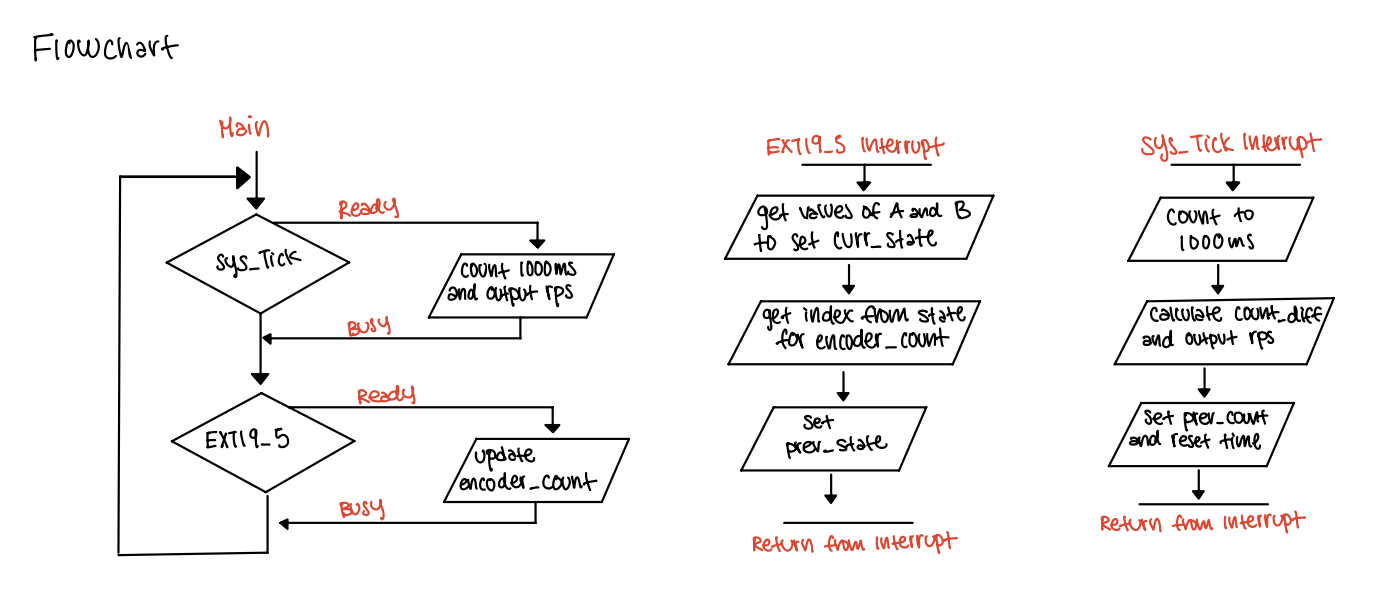 Flowchart
Main
Ready
Sys_Tick
count 1000ms
and output rps
Busy
Ready
EXTI9_5
update
encoder_count
Busy
EXTI9_5 Interrupt
get values of A and B
to set curr_state
get index from state
for encoder_count
set
prev_state
Return from interrupt
Sys_Tick Interrupt
count to
1000ms
calculate count_diff
and output rps
Set prev_count
and reset time
Return from interrupt